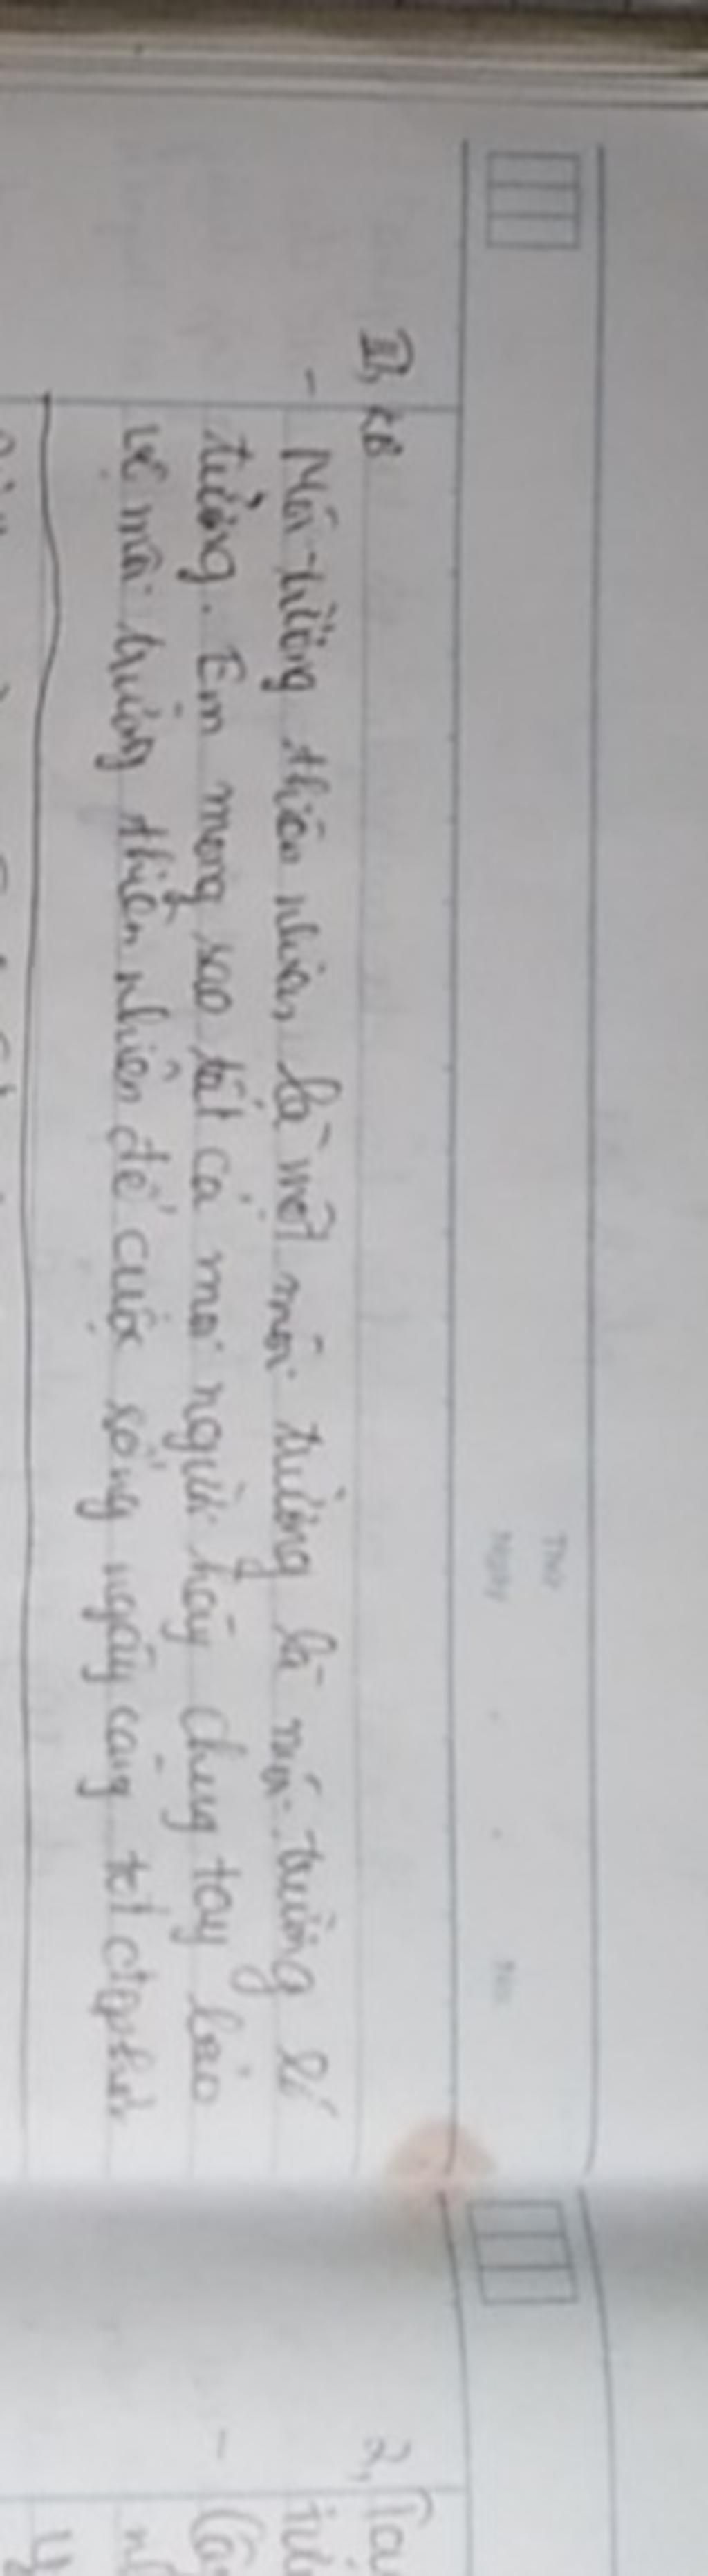 Thứ
Ngày
No.
III, KB
- Môi trường thiên nhiên là một môi trường là môi trường lí
tưởng. Em mong sao tất cả mọi người hãy chung tay bảo
vệ môi trường thiên nhiên để cuộc sống ngày càng tốt đẹp hơn
2,
-